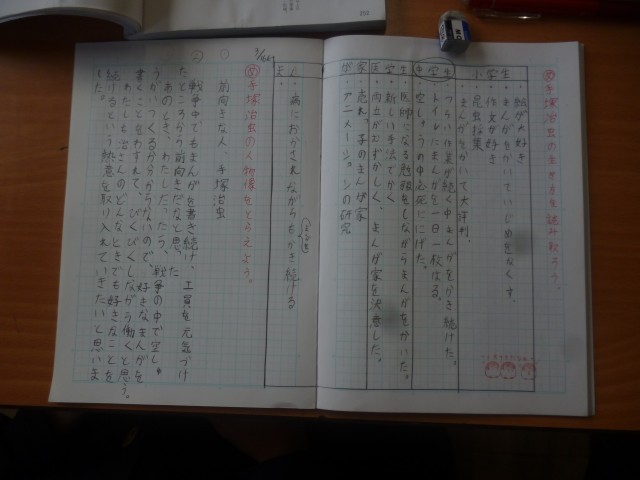 め 手塚治虫の生き方を読み取ろう。
小学生
・絵が大好き
・まんがをかいていじめをなくす。
・作文が好き
・昆虫採集
まんがをかいて大評判。
中学生
・つらい作業が続く中まんがをかき続けた。
・トイレにまんがを一日一枚はる。
・空しゅうの中必死ににげた。
医学生
・医師になる勉強をしながらまんがをかいた。
・新しい手法でかく
・両立がむずかしく、まんが家を決意した。
・売れっ子のまんが家
・アニメーションの研究
・病におかされながらもかき続ける
め 手塚治虫の人物像をとらえよう。
① 前向きな人、手塚治虫
②
戦争中でもまんがを書き続け、工員を元気づけ
たところから前向きだなと思った。
あのとき、わたしだったら、戦争の中で空しゅ
うがいつくるか分からないので、好きなまんがを
書くこと言わすれて、びくびくしながら働くと思う。
わたしも治さんのどんなときでも好きなことを
続けるという熱意を取り入れていきたいと思いま
した。